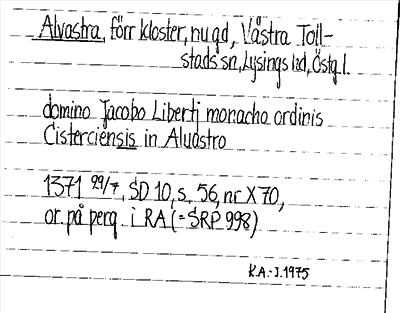 Alvastra, förr kloster, nu gd, Västra Toll-
stads sn, Lysings hd, Östg.l.
domino Jacobo Libertj monacho ordinis
Cisterciensis in Aluastro
1371 29/7, SD 10, s. 56, nr X 70,
or. på perg. i RA (= SRP 998)
K.A:-J.1975